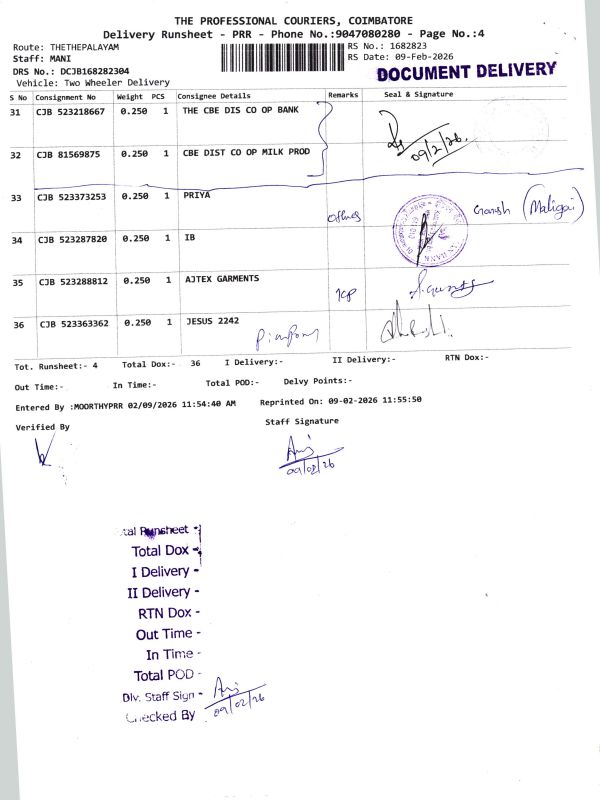 THE PROFESSIONAL COURIERS, COIMBATORE
Delivery Runsheet - PRR - Phone No.:9047080280 - Page No.:4
Route: THETHEPALAYAM RS No.: 1682823
Staff: MANI RS Date: 09-Feb-2026
DRS No.: DCJB168282304 DOCUMENT DELIVERY
Vehicle: Two Wheeler Delivery
S No Consignment No Weight PCS Consignee Details Remarks Seal & Signature
31 CJB 523218667 0.250 1 THE CBE DIS CO OP BANK
09/2/26.
32 CJB 81569875 0.250 1 CBE DIST CO OP MILK PROD
33 CJB 523373253 0.250 1 PRIYA
Ganesh (Maligai)
34 CJB 523287820 0.250 1 IB
35 CJB 523288812 0.250 1 AJTEX GARMENTS
36 CJB 523363362 0.250 1 JESUS 2242
Tot. Runsheet:- 4 Total Dox:- 36 I Delivery:- II Delivery:- RTN Dox:-
Out Time:- In Time:- Total POD:- Delvy Points:-
Entered By :MOORTHYPRR 02/09/2026 11:54:40 AM Reprinted On: 09-02-2026 11:55:50
Verified By Staff Signature
09/02/26
tal Runsheet -
Total Dox -
I Delivery -
II Delivery -
RTN Dox -
Out Time -
In Time -
Total POD -
Dlv. Staff Sign -
Checked By 09/02/26